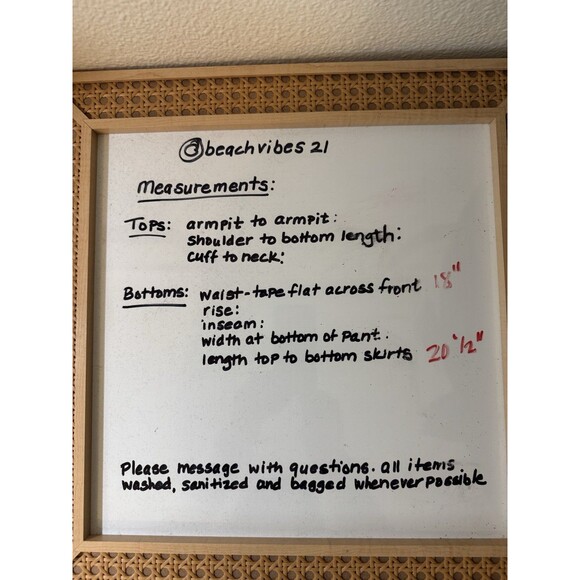 @beachvibes 21
Measurements:
Tops: armpit to armpit:
shoulder to bottom length:
cuff to neck:
Bottoms: waist-tape flat across front 18"
rise:
inseam:
width at bottom of pant:
length top to bottom skirts 20 1/2"
Please message with questions. all items
washed, sanitized and bagged whenever possible